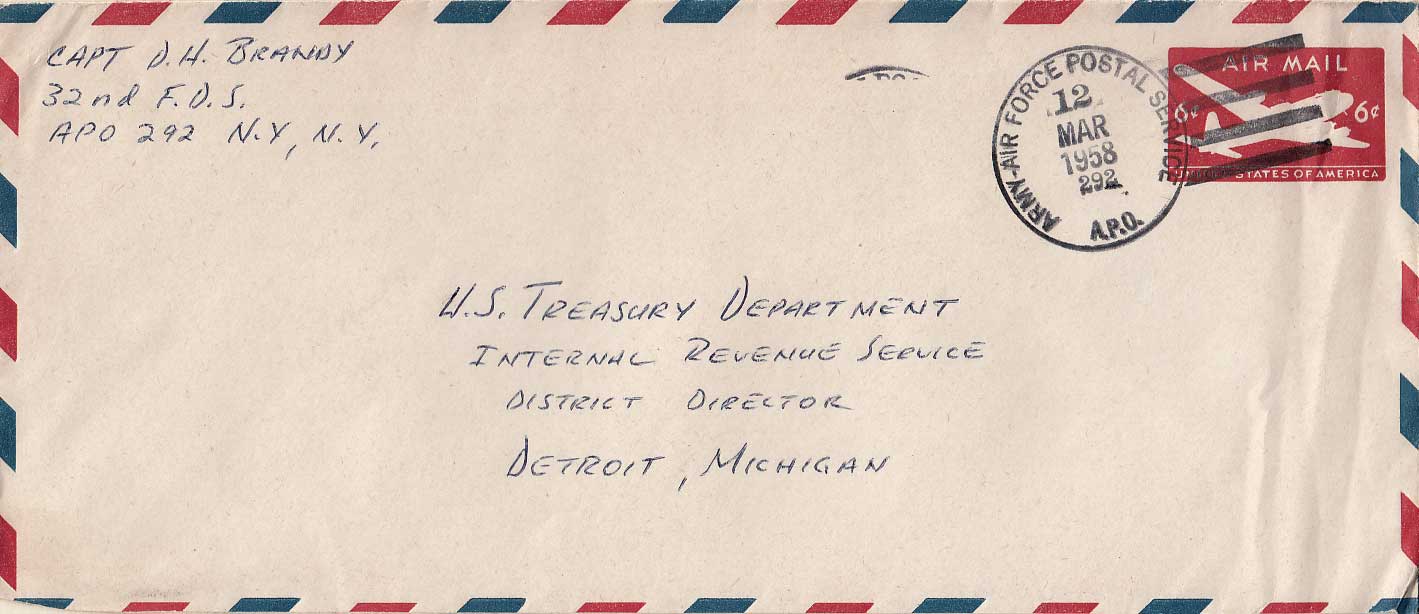 CAPT D.H. BRANDY
32nd F.D.S.
APO 292 N.Y, N.Y.
ARMY-AIR FORCE POSTAL SERVICE
12
MAR
1958
292
A.P.O.
AIR MAIL
6¢ 6¢
UNITED STATES OF AMERICA
U.S. TREASURY DEPARTMENT
INTERNAL REVENUE SERVICE
DISTRICT DIRECTOR
DETROIT, MICHIGAN